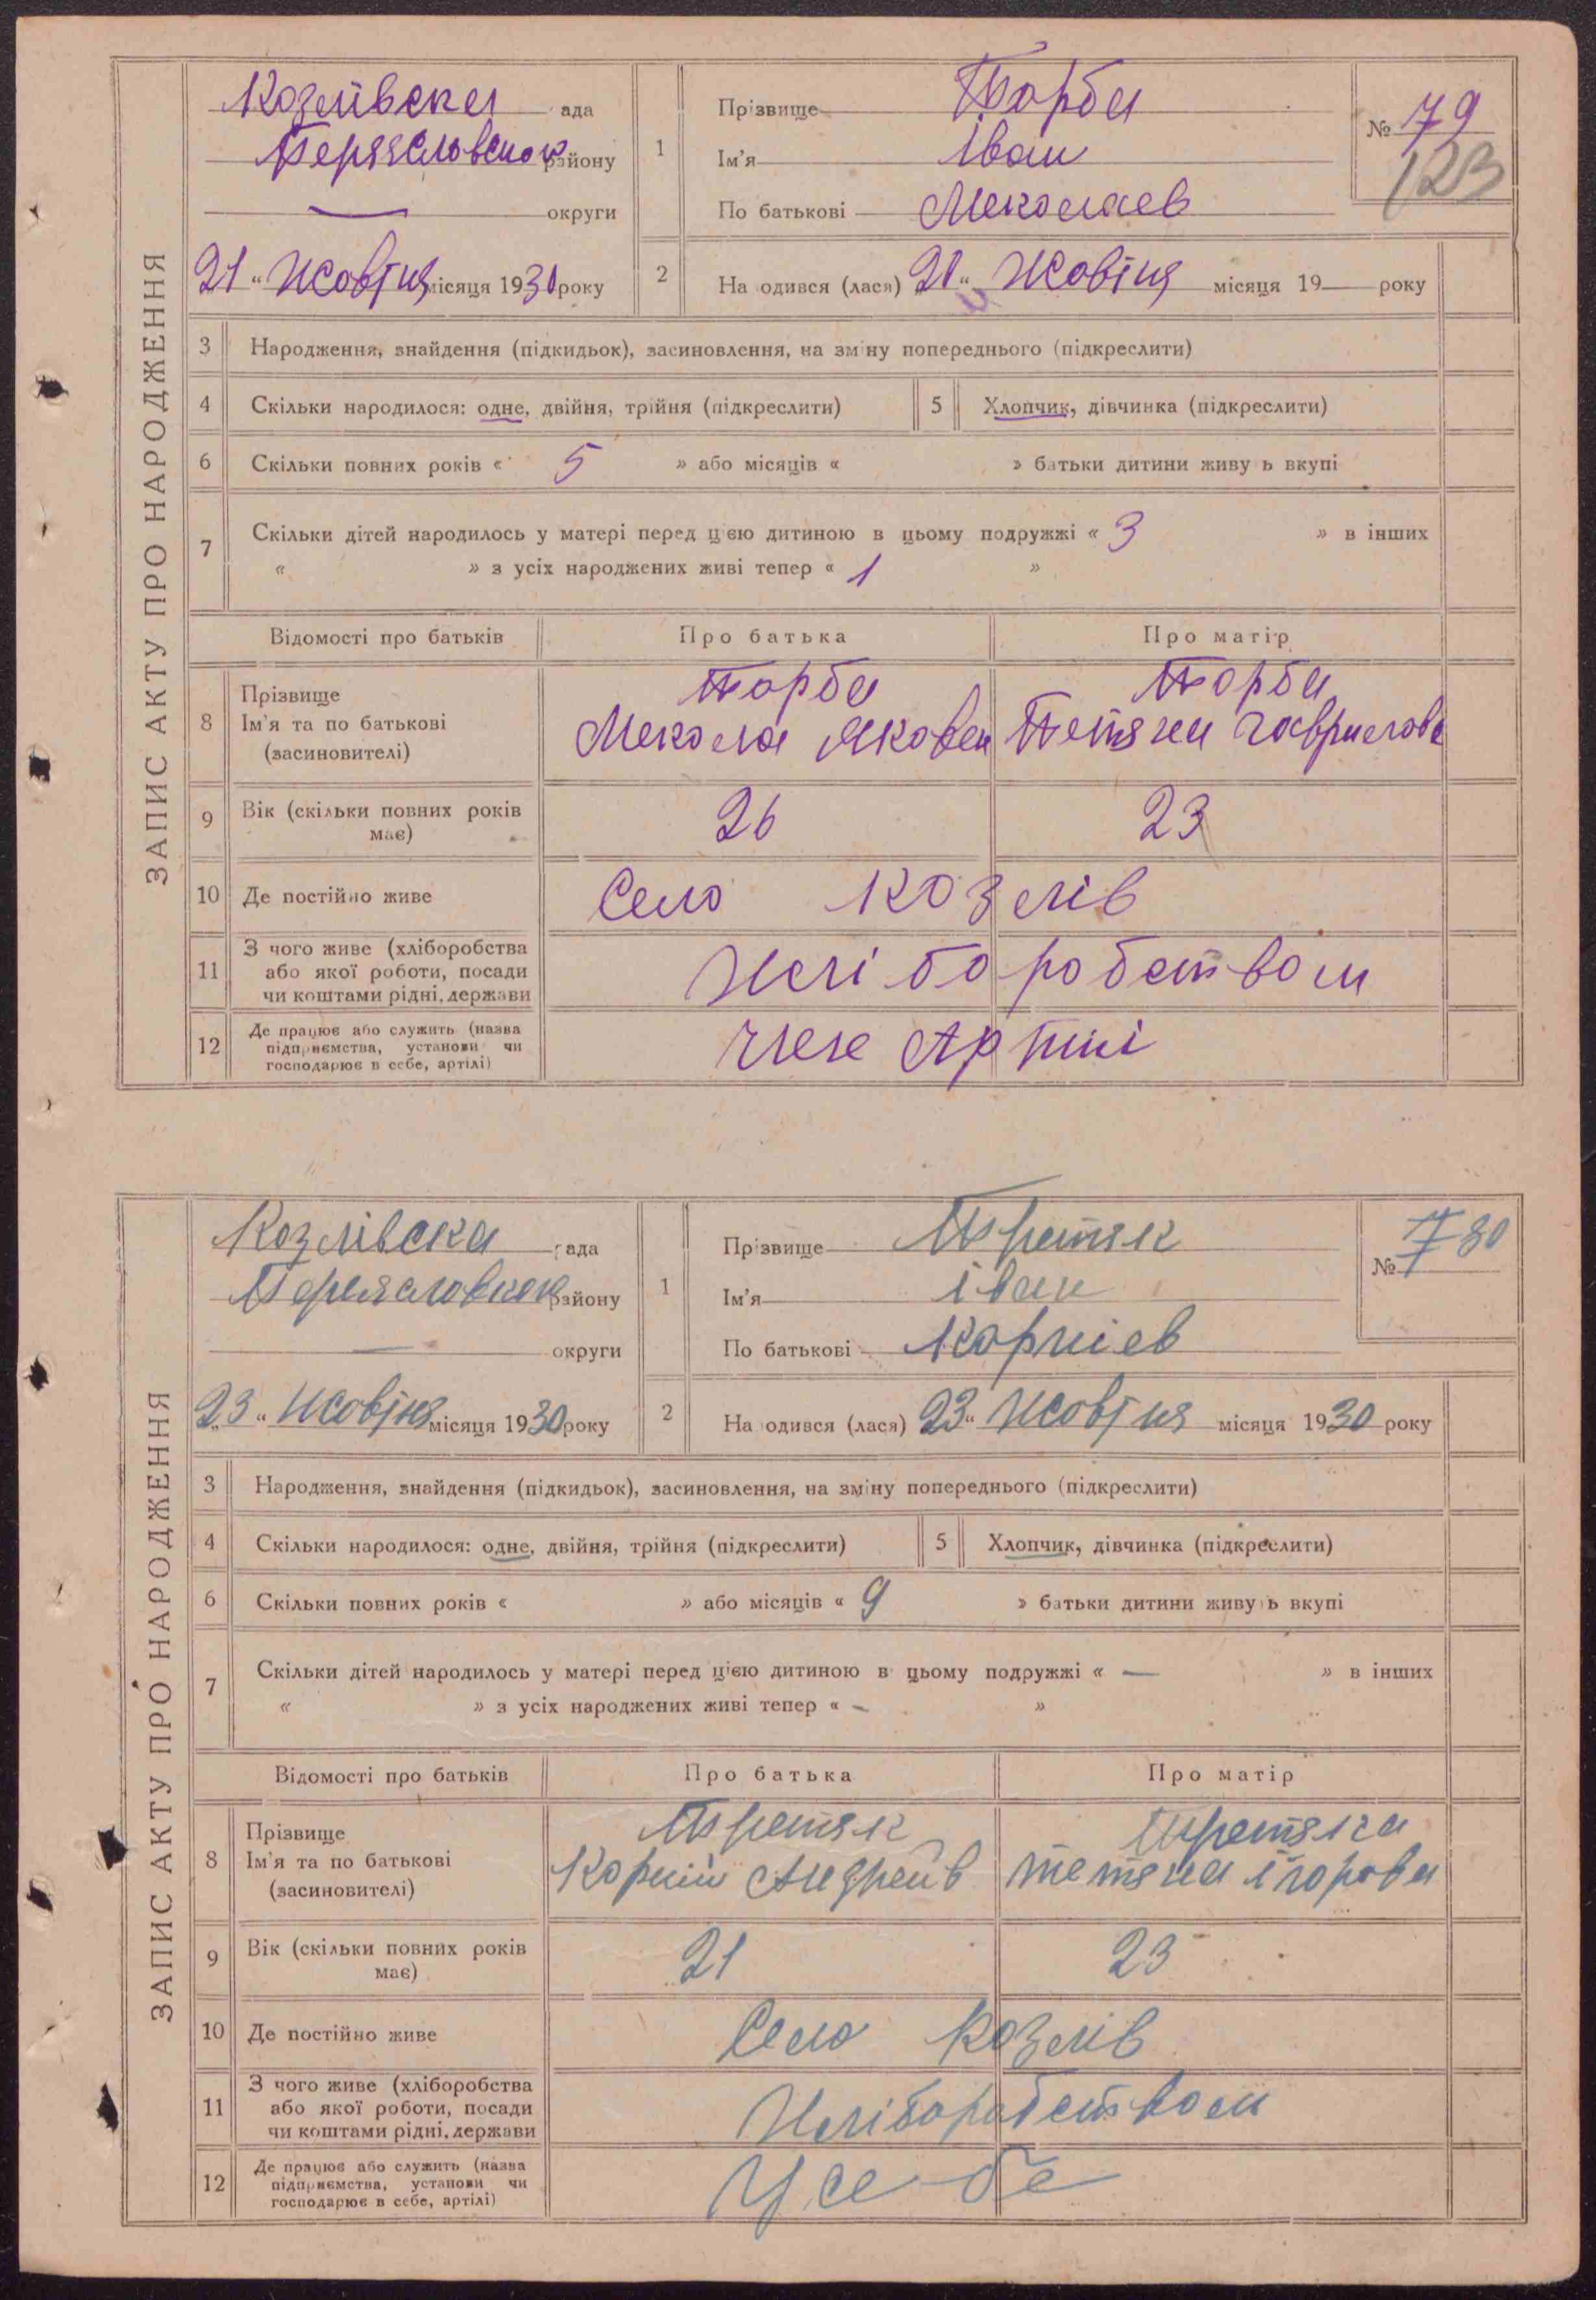 ЗАПИС АКТУ ПРО НАРОДЖЕННЯ
Козлівска рада
району
— округи
21 " Жовтня місяця 1930 року
1
Прізвище Торба
Ім'я Іван
По батькові Меколаев
№ 79
123
2
Народився (лася) 21 " Жовтня місяця 19 року
3 Народження, знайдення (підкидьок), засиновлення, на зміну попереднього (підкреслити)
4 Скільки народилося: одне, двійня, трійня (підкреслити) 5 Хлопчик, дівчинка (підкреслити)
6 Скільки повних років « 5 » або місяців « » батьки дитини живуть вкупі
7 Скільки дітей народилось у матері перед цією дитиною в цьому подружжі « 3 » в інших
« » з усіх народжених живі тепер « 1 »
Відомості про батьків Про батька Про матір
8 Прізвище
Ім'я та по батькові
(засиновителі)
Торба
Мекола Яковен
Торба
Тетяна Гаврилова
9 Вік (скільки повних років має) 26 23
10 Де постійно живе Село Козлів
11 З чого живе (хліборобства
або якої роботи, посади
чи коштами рідні, держави
Хліборобством
12 Де працює або служить (назва
підприємства, установи чи
господарює в себе, артілі)
Артілі
ЗАПИС АКТУ ПРО НАРОДЖЕННЯ
Козлівска рада
району
— округи
23 " Жовтня місяця 1930 року
1
Прізвище Третяк
Ім'я Іван
По батькові Корніев
№ 80
2
Народився (лася) 23 " Жовтня місяця 1930 року
3 Народження, знайдення (підкидьок), засиновлення, на зміну попереднього (підкреслити)
4 Скільки народилося: одне, двійня, трійня (підкреслити) 5 Хлопчик, дівчинка (підкреслити)
6 Скільки повних років « » або місяців « 9 » батьки дитини живуть вкупі
7 Скільки дітей народилось у матері перед цією дитиною в цьому подружжі « — » в інших
« » з усіх народжених живі тепер « - »
Відомості про батьків Про батька Про матір
8 Прізвище
Ім'я та по батькові
(засиновителі)
Третяк
Корній Андреїв
Третяка
Тетяна Ігорова
9 Вік (скільки повних років має) 21 23
10 Де постійно живе Село Козлів
11 З чого живе (хліборобства
або якої роботи, посади
чи коштами рідні, держави
Хліборобством
12 Де працює або служить (назва
підприємства, установи чи
господарює в себе, артілі)
У себе